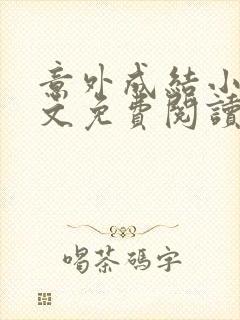 意外成結小
文免費閱讀
喝茶碼字